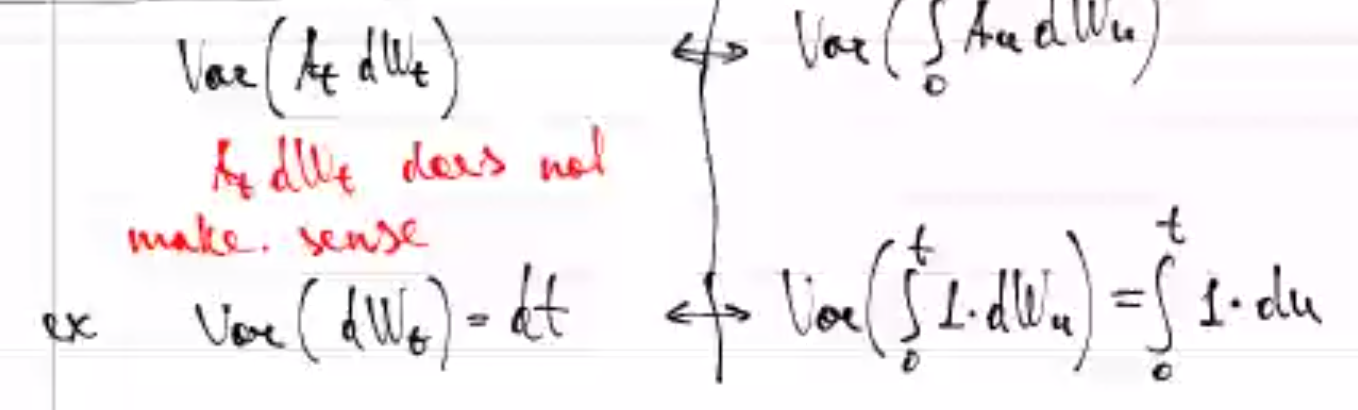 Var(A_t dW_t) ↔ Var(∫_0 A_u dW_u)
A_t dW_t does not
make. sense
ex Var(dW_t) = dt ↔ Var(∫_0^t 1·dW_u) = ∫_0^t 1·du